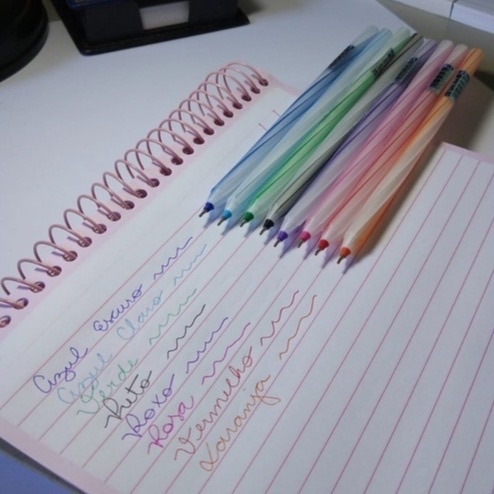 Azul Escuro
Azul Claro
Verde
Preto
Roxo
Rosa
Vermelho
Laranja